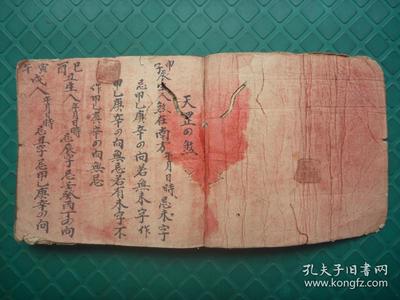 天罡の煞
申子辰生人煞在南方年月日時忌未字
忌甲乙庚辛の向若無本字作
甲乙庚辛の向無忌若有本字不
作甲乙庚辛の向無忌
巳酉丑生人年月日時忌辰字忌壬癸丙丁の向
寅午戌人年月日時忌丑字忌甲乙庚辛の向
孔夫子旧书网
kongfz.com